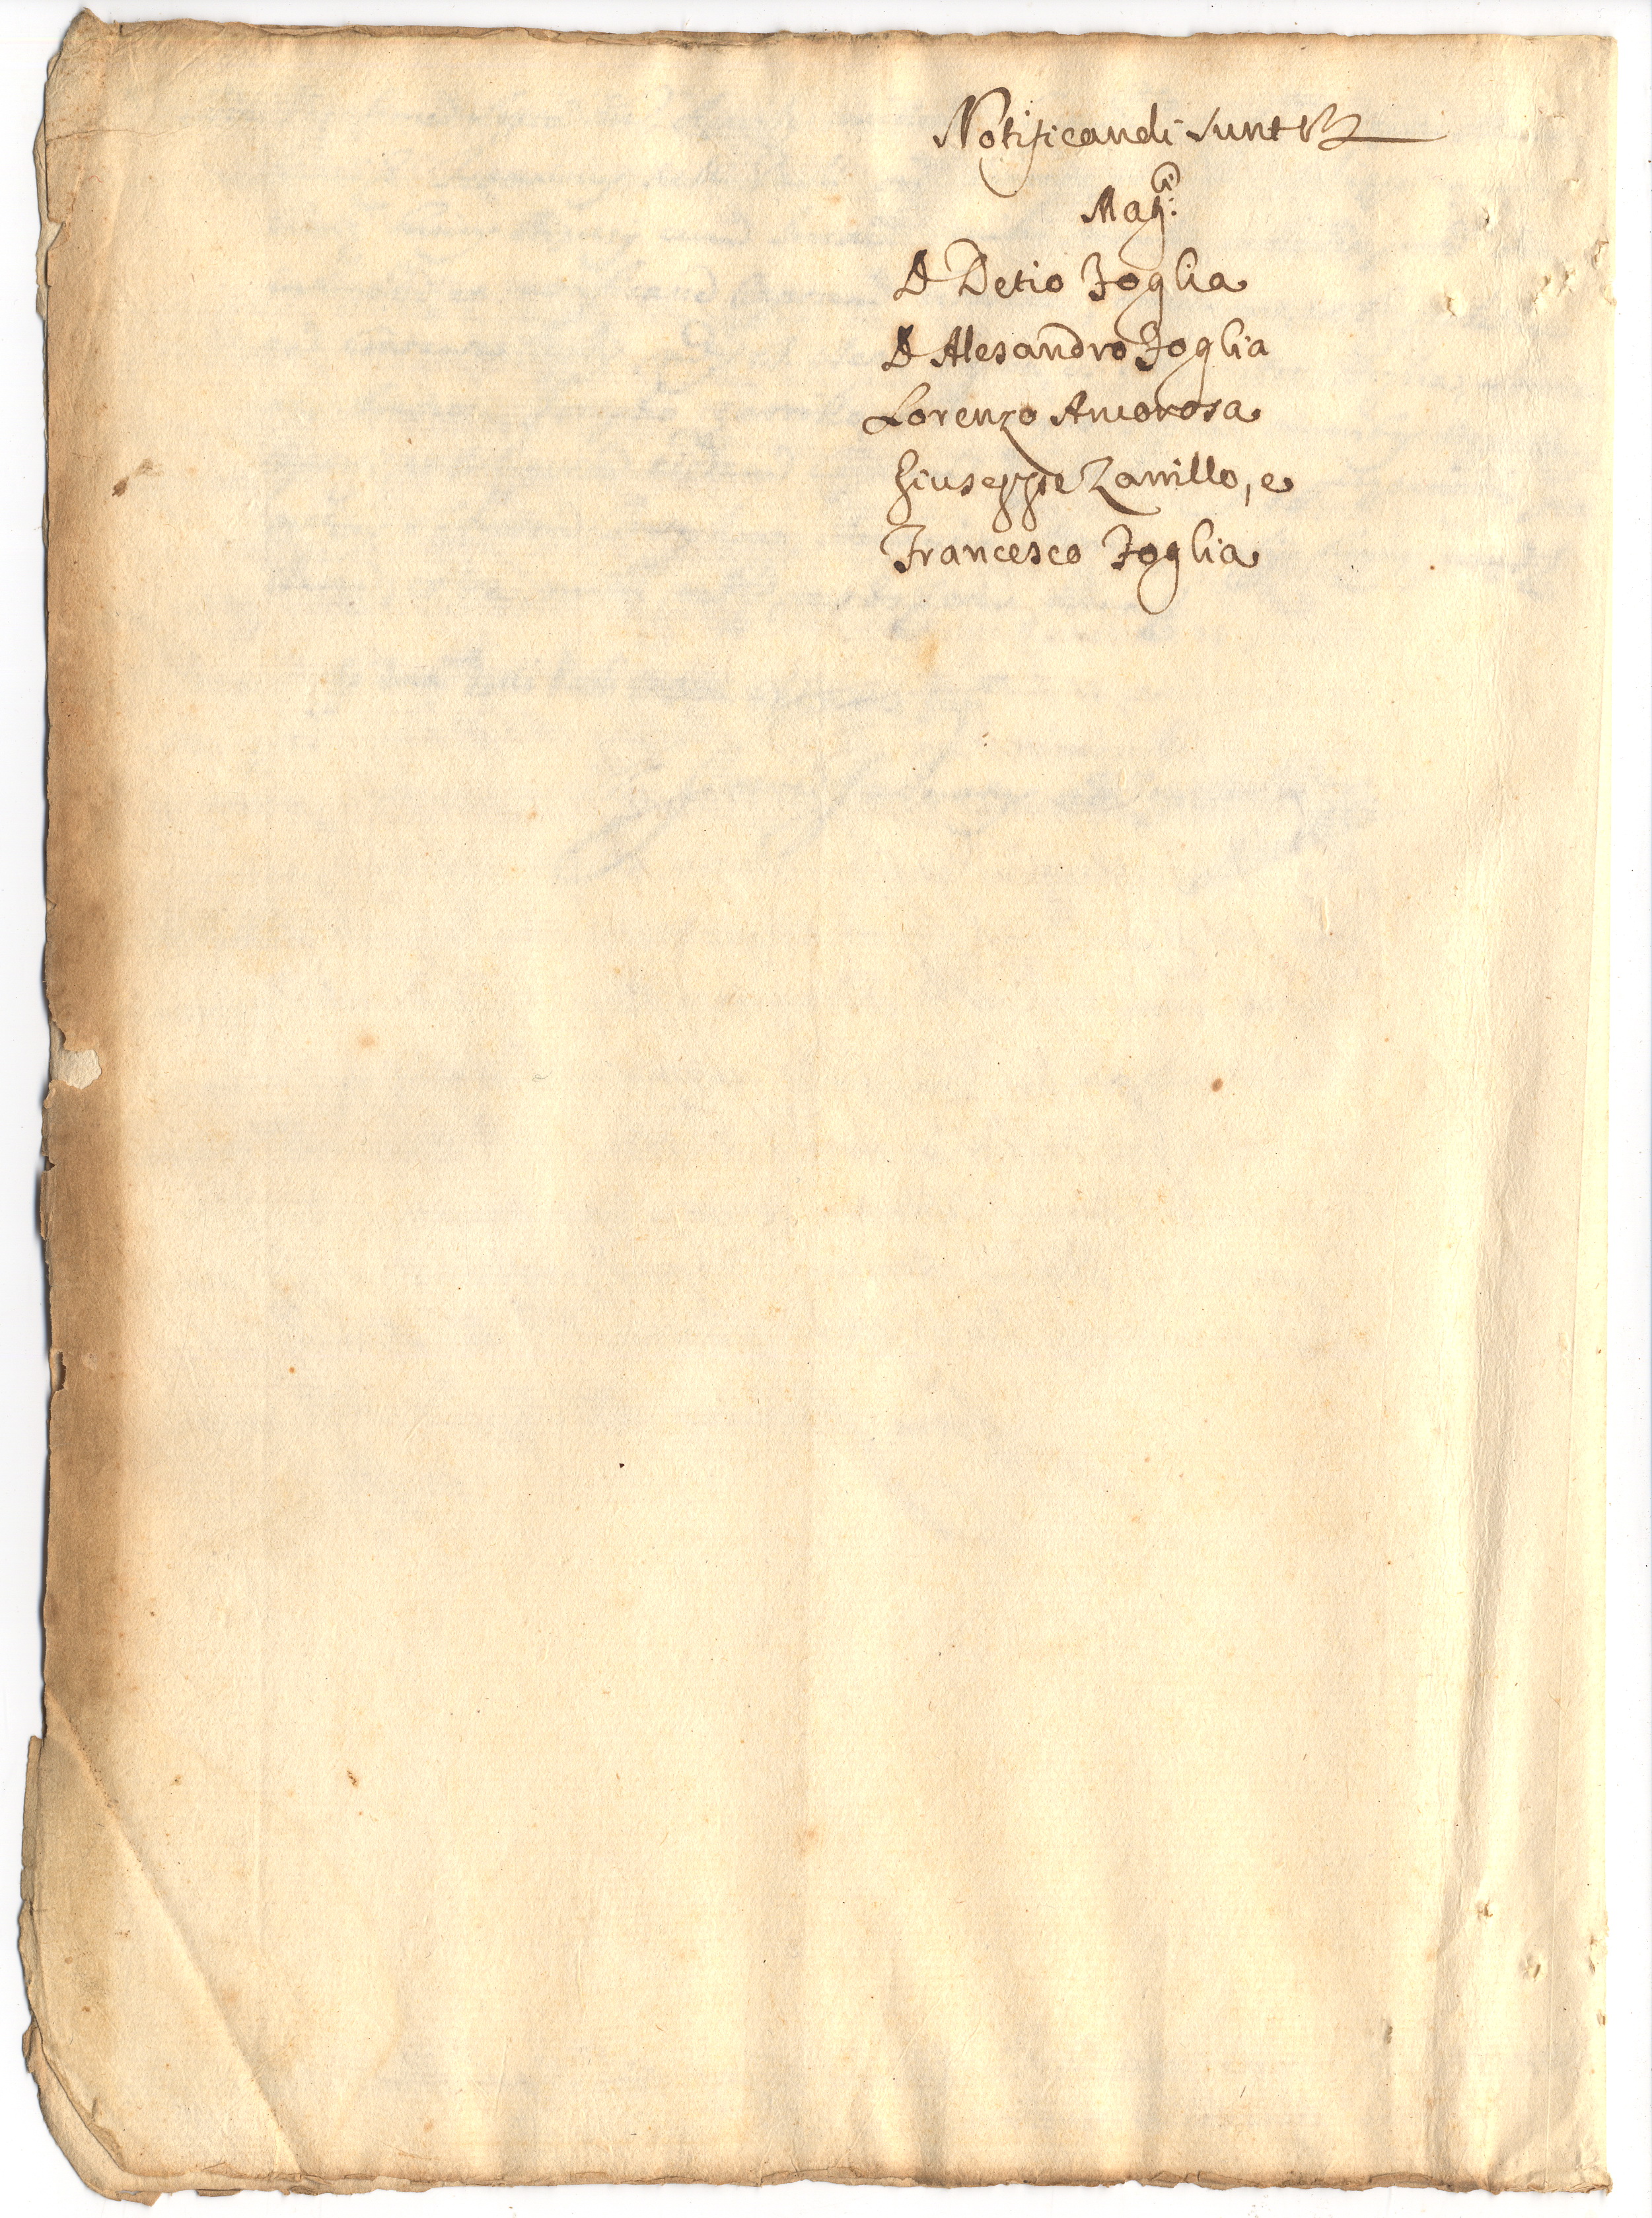 Notificandi sunt Vz
Mag:ci
D Detio Foglia
D Alesandro Foglia
Lorenzo Amorosa
Giuseppe Zarrillo, e
Francesco Foglia